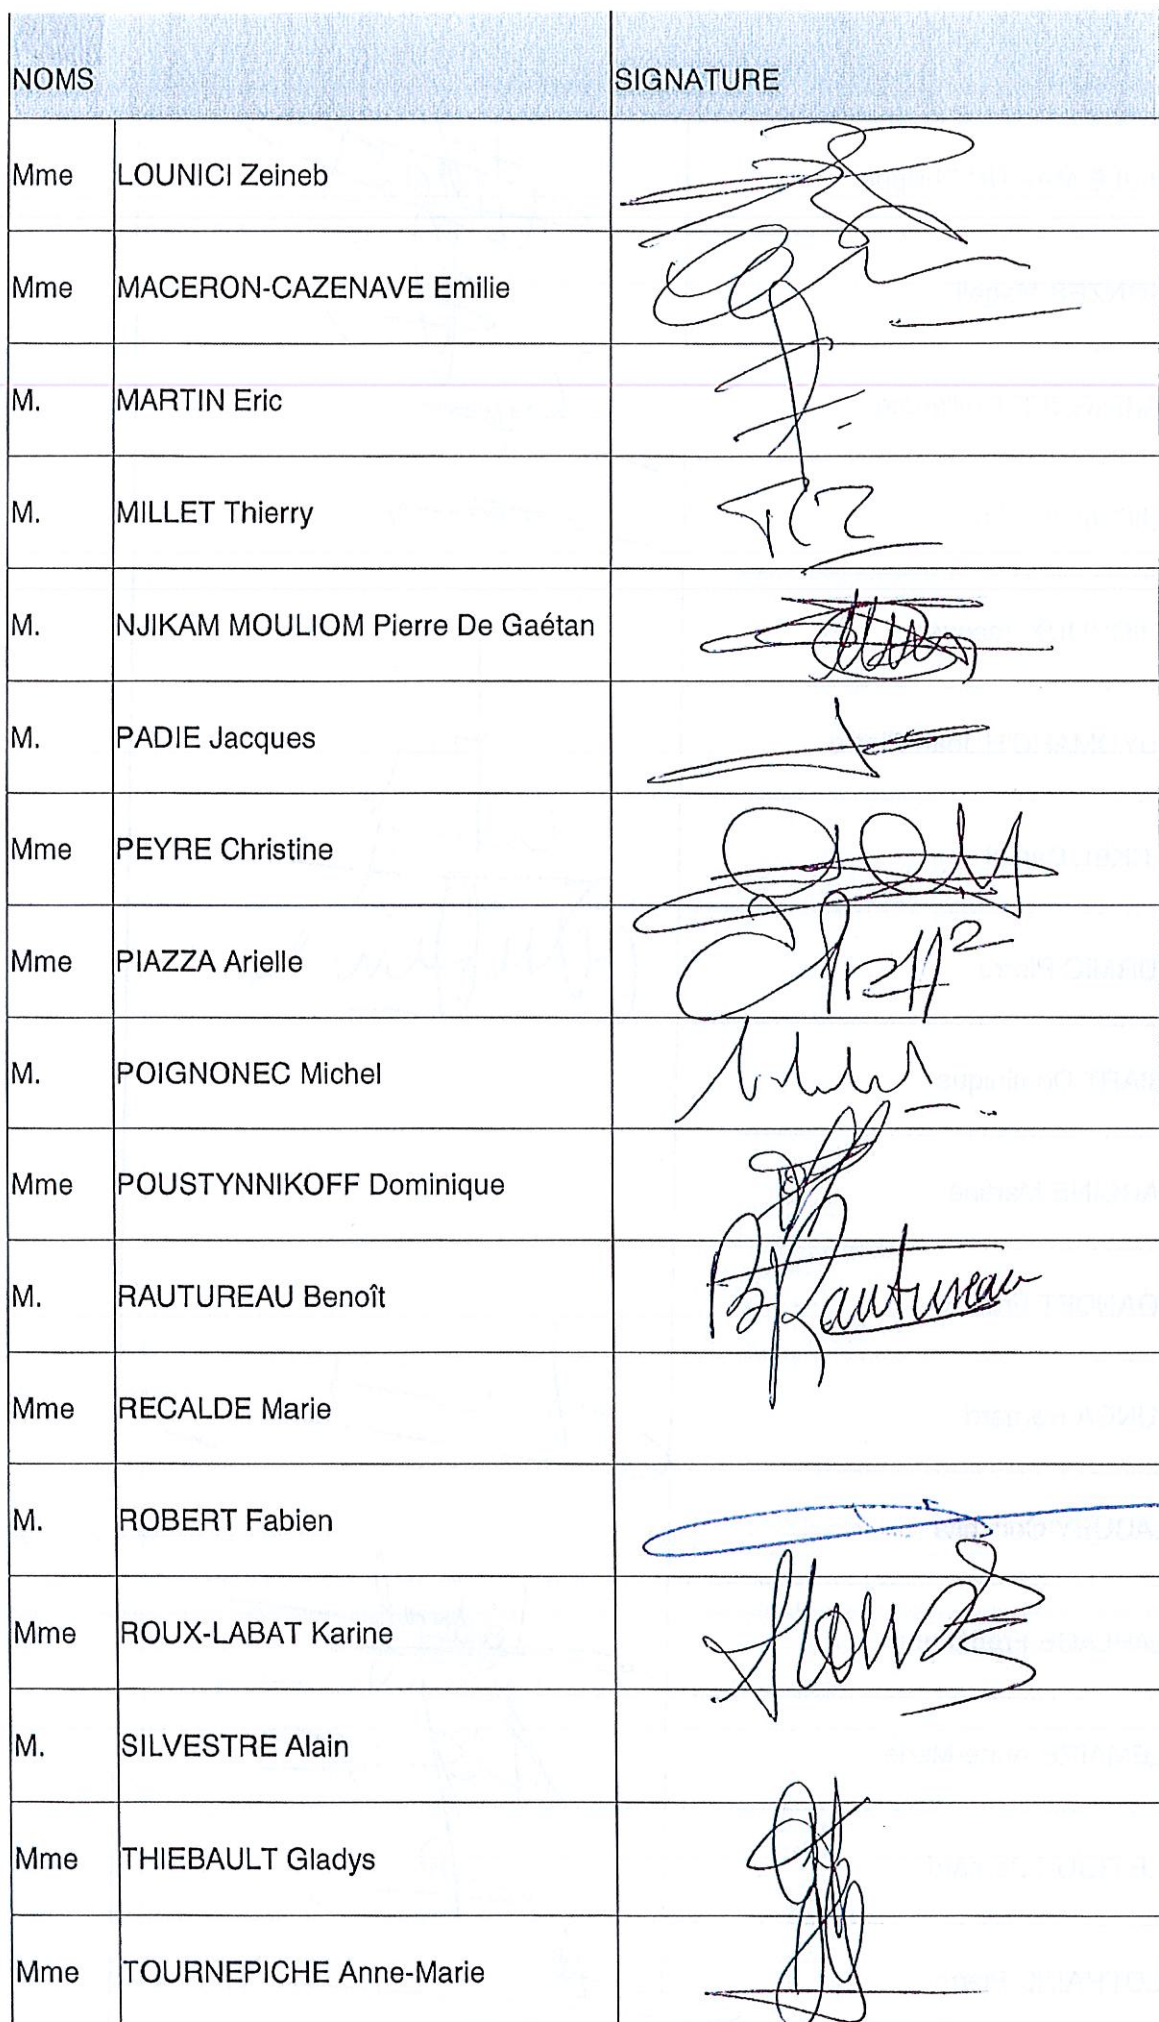 NOMS SIGNATURE
Mme LOUNICI Zeineb
Mme MACERON-CAZENAVE Emilie
M. MARTIN Eric
M. MILLET Thierry
M. NJIKAM MOULIOM Pierre De Gaétan
M. PADIE Jacques
Mme PEYRE Christine
Mme PIAZZA Arielle
M. POIGNONEC Michel
Mme POUSTYNNIKOFF Dominique
M. RAUTUREAU Benoît BRautureau
Mme RECALDE Marie
M. ROBERT Fabien
Mme ROUX-LABAT Karine
M. SILVESTRE Alain
Mme THIEBAULT Gladys
Mme TOURNEPICHE Anne-Marie